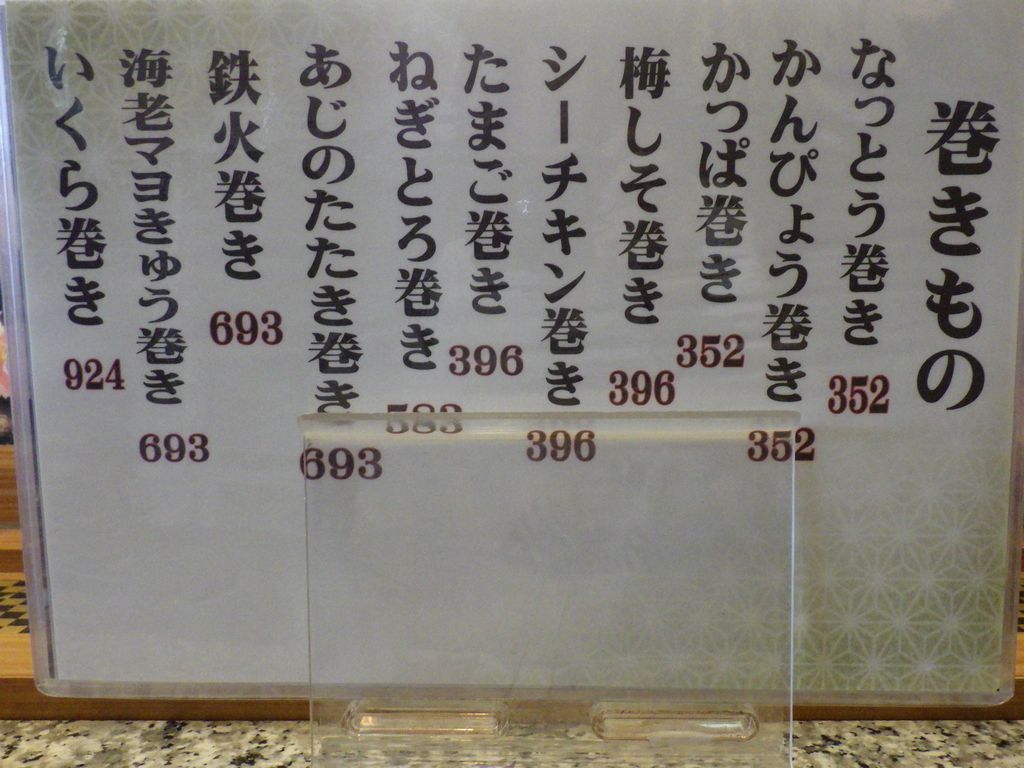 巻きもの
なっとう巻き 352
かんぴょう巻き 352
かっぱ巻き 352
梅しそ巻き 396
シーチキン巻き 396
たまご巻き 396
ねぎとろ巻き 583
あじのたたき巻き 693
鉄火巻き 693
海老マヨきゅう巻き 693
いくら巻き 924